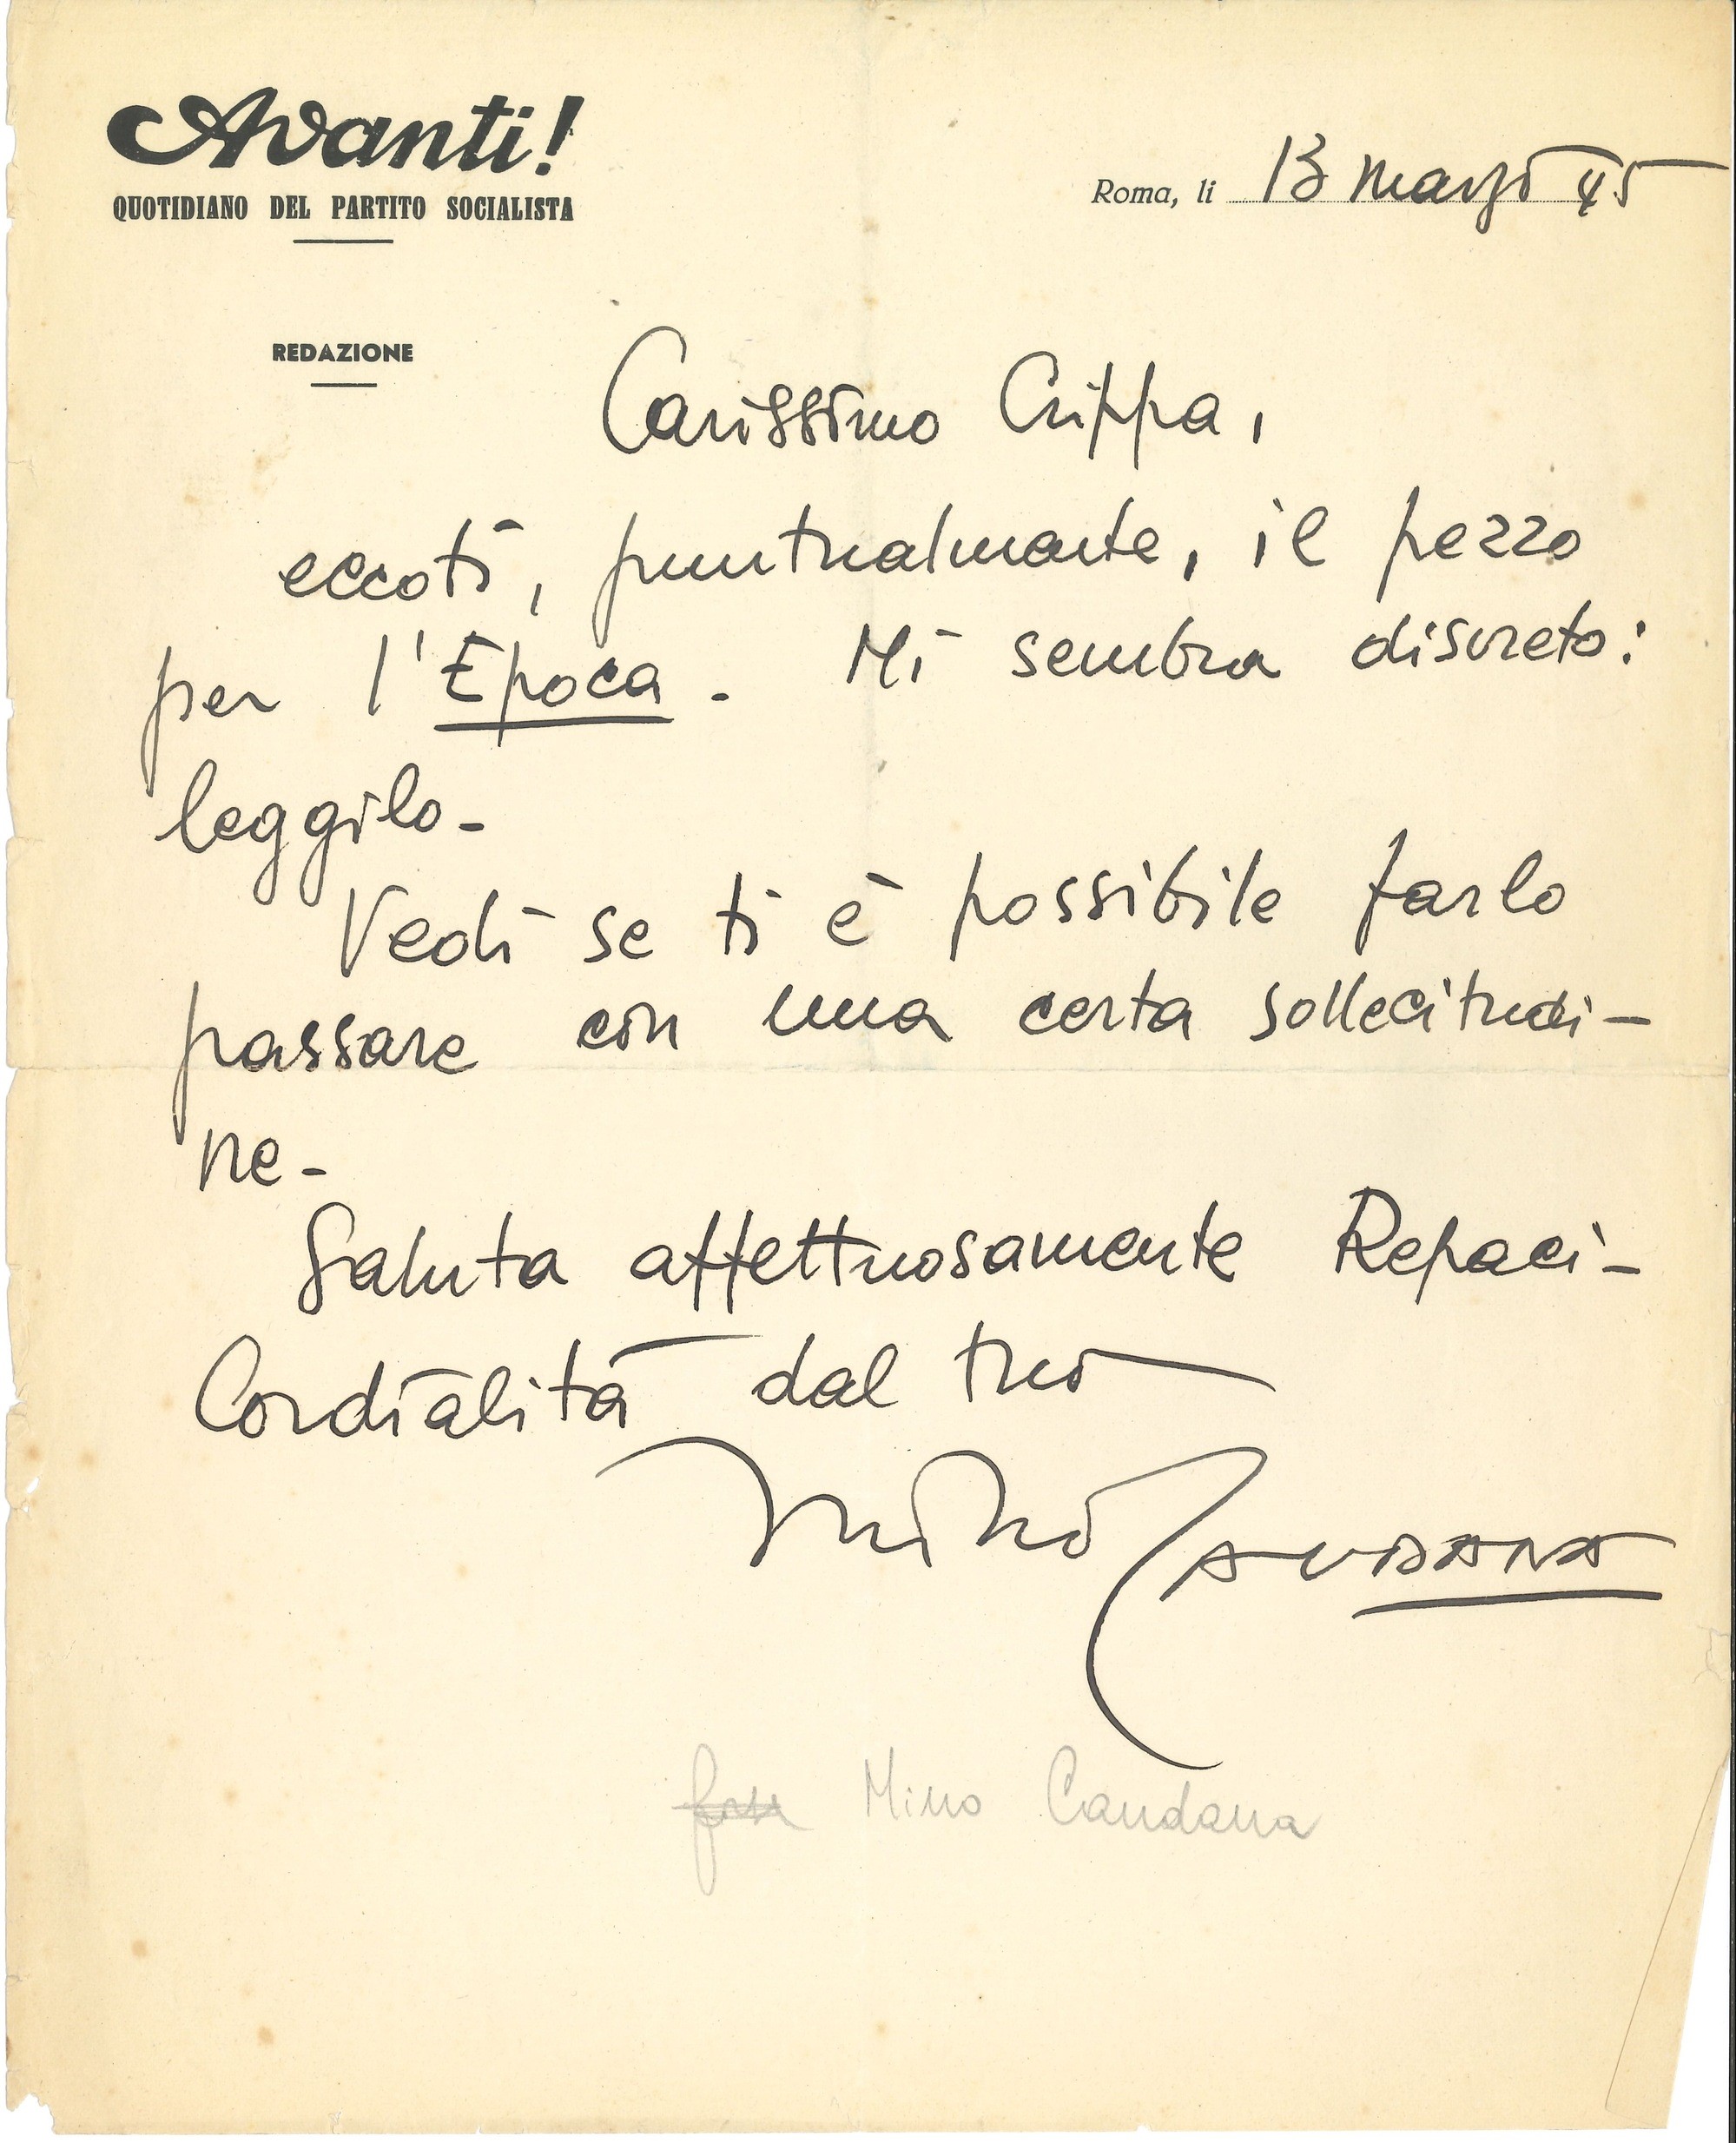 Avanti!
QUOTIDIANO DEL PARTITO SOCIALISTA
Roma, li 13 marzo 45
REDAZIONE
Carissimo Crippa,
eccoti, puntualmente, il pezzo
per l'Epoca. Mi sembra discreto:
leggilo-
Vedi se ti è possibile farlo
passare con una certa sollecitudi-
ne-
Saluta affettuosamente Repaci-
Cordialità dal tuo
Mino CAUDANA
forse Mino Caudana